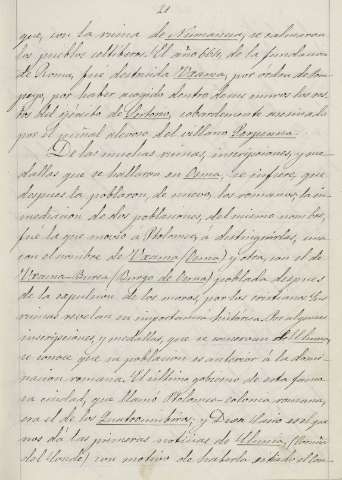 21
que, con la ruina de Numancia, se calmaran
los pueblos celtíberos. El año 664, de la fundacion
de Roma, fué destruida Uxama, por orden de Pom-
peyo, por haber acogido dentro de sus muros los res-
tos del ejército de Sertorio, cobardemente asesinado
por el puñal alevoso del villano Perpenna.
De las muchas ruinas, inscripciones, y me-
dallas que se hallaron en Osma, se infiere, que
despues la poblaron, de nuevo, los romanos; la in-
mediacion de dos poblaciones, del mismo nombre,
fué la que movió á Ptolomeo, á distinguirlas, una
con el nombre de Uxama (Osma) y otra, con el de
Uxama-Burca (Burgo de Osma) poblada despues
de la expulsion de los moros, por los cristianos. Sus
ruinas revelan su importancia histórica. Por algunas
inscripciones, y medallas, que se conservan de Clunia,
se conoce que su poblacion es anterior á la domi-
nacion romana. El último gobierno de esta famo-
sa ciudad, que llamó Ptolomeo colonia romana,
era el de los Quatuorviros; y Dion Casio es el que
nos dá las primeras noticias de Clunia, (Coruña
del Conde) con motivo de haberla sitiado el Con-